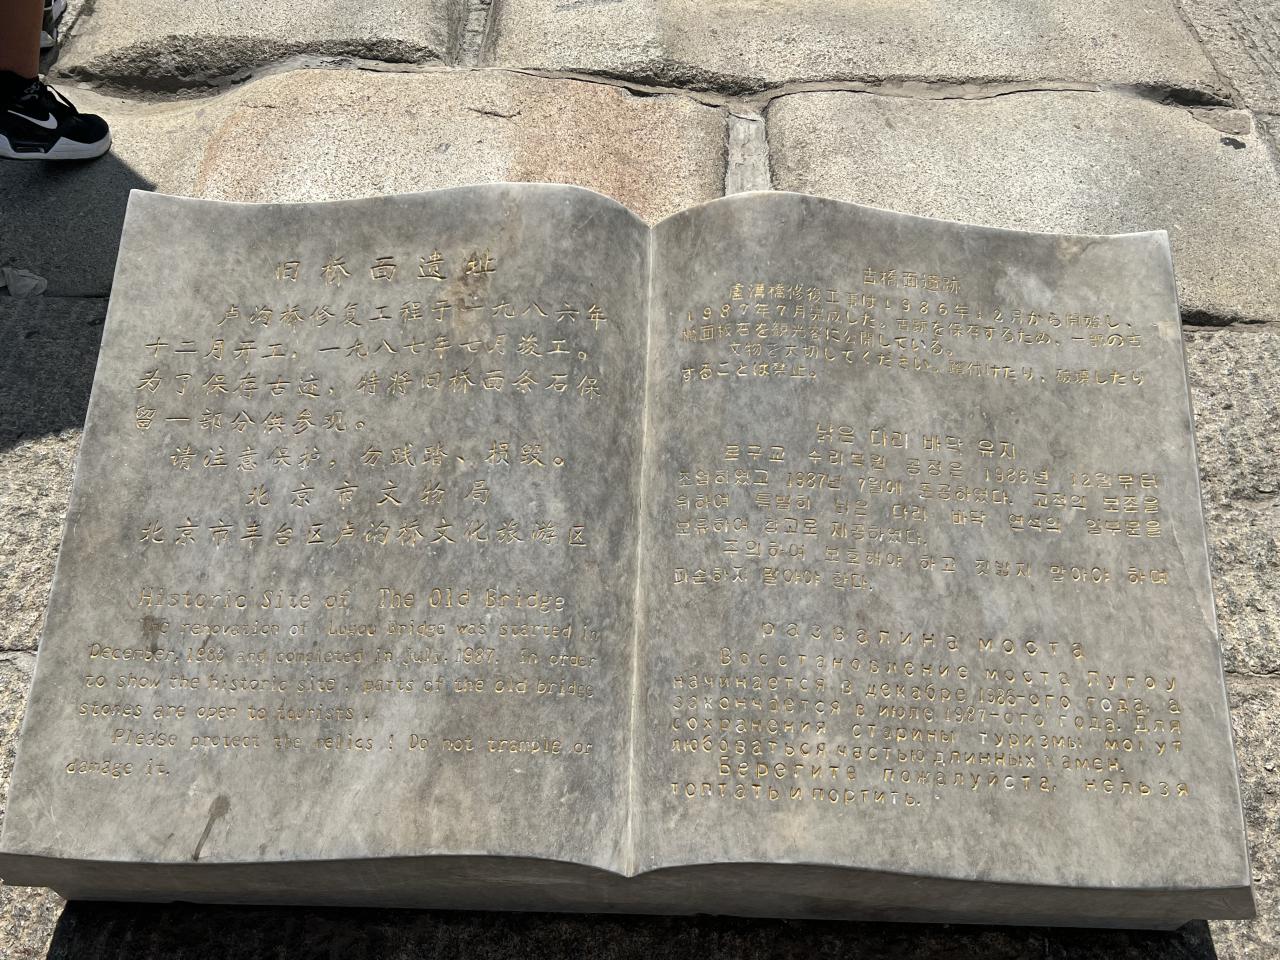 旧桥面遗址
卢沟桥修复工程于一九八六年
十二月开工，一九八七年七月竣工。
为了保存古迹，特将旧桥面条石保
留一部分供参观。
请注意保护，勿践踏、损毁。
北京市文物局
北京市丰台区卢沟桥文化旅游区
Historic Site of The Old Bridge
The renovation of Lugou Bridge was started in
December, 1986 and completed in July, 1987. In order
to show the historic site, parts of the old bridge
stones are open to tourists.
Please protect the relics! Do not trample or
damage it.
古橋面遺跡
盧溝橋修復工事は1986年12月から開始し、
1987年7月完成した。古跡を保存するため、一部の古
橋面板石を観光客に公開している。
文物を大切してください。踏付けたり、破壊したり
することは禁止。
낡은 다리 바닥 유지
로구교 수리복원 공정은 1986년 12월부터
조업하였고 1987년 7월에 준공하였다. 고적의 보존을
위하여 특별히 낡은 다리 바닥 연석의 일부분을
보류하여 참고로 제공하였다.
주의하여 보호해야 하고 짓밟지 말아야 하며
파손하지 말아야 한다.
развалина моста
Восстановление моста Лугоу
начинается в декабре 1986-ого года, а
закончается в июле 1987-ого года. Для
сохранения старины туризмы могут
любоваться частью длинных камен.
Берегите пожалуйста, нельзя
топтать и портить.